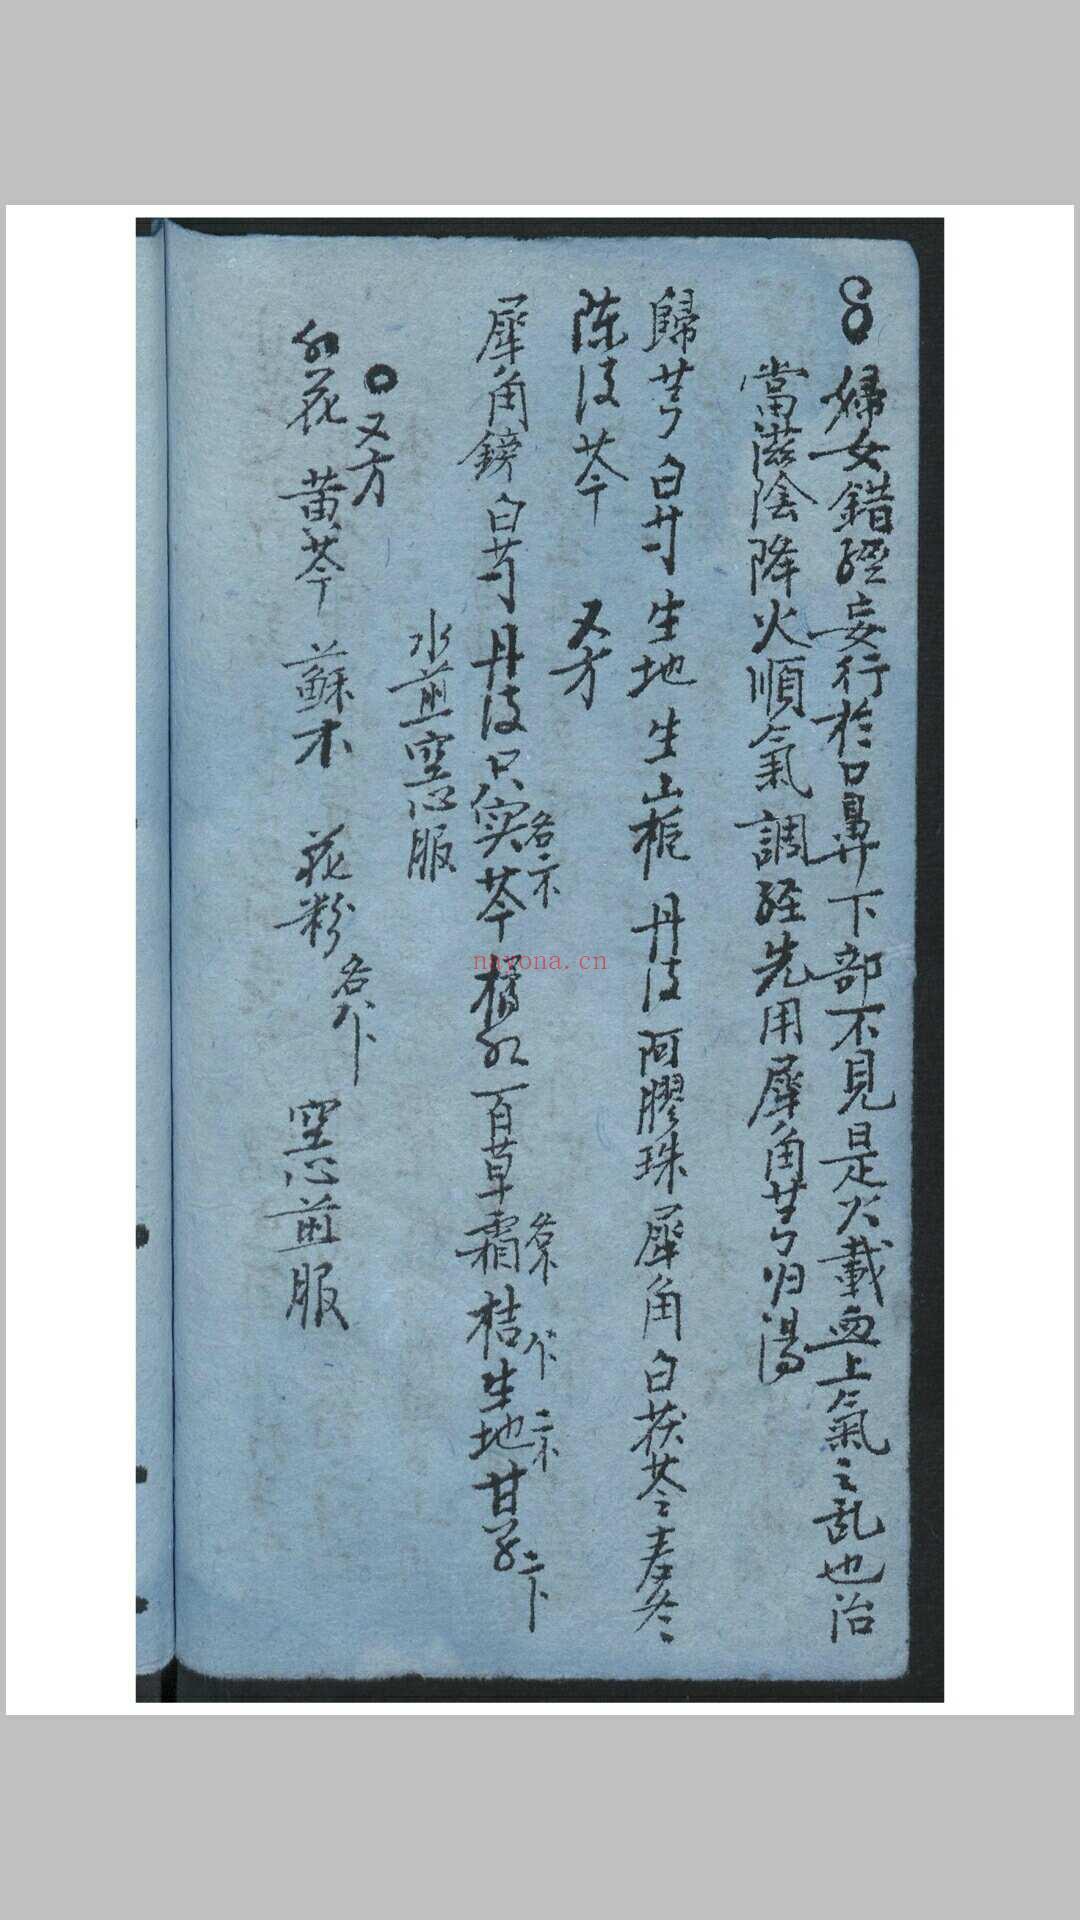 婦女錯經妄行於口鼻下部不見是火載血上氣之乱也治
當滋陰降火順氣調經先用犀角芎归湯
歸芎白芍生地生山梔丹皮阿膠珠犀角白茯苓麦冬
陈皮芩 又方
犀角鎊白芍丹皮只实芩橘红百草霜桔生地甘草
水煎空心服
又方
红花 黄芩 蘇木 花粉 各 空心煎服
nayona.cn